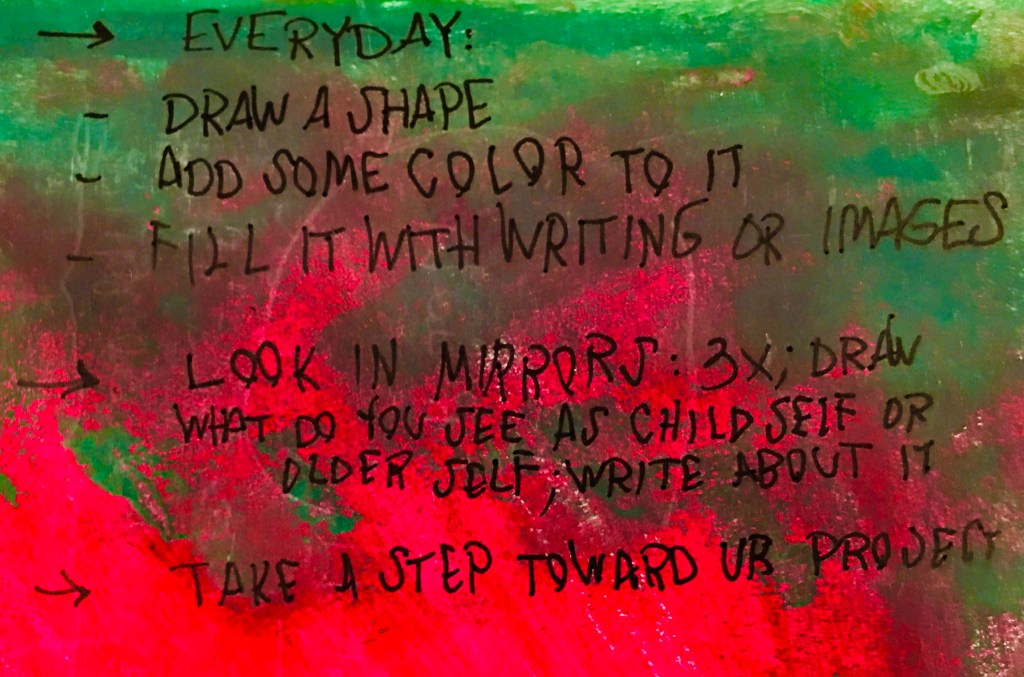 → EVERYDAY:
- DRAW A SHAPE
- ADD SOME COLOR TO IT
- FILL IT WITH WRITING OR IMAGES
→ LOOK IN MIRRORS: 3X; DRAW
WHAT DO YOU SEE AS CHILD SELF OR
OLDER SELF; WRITE ABOUT IT
→ TAKE A STEP TOWARD UR PROJECT